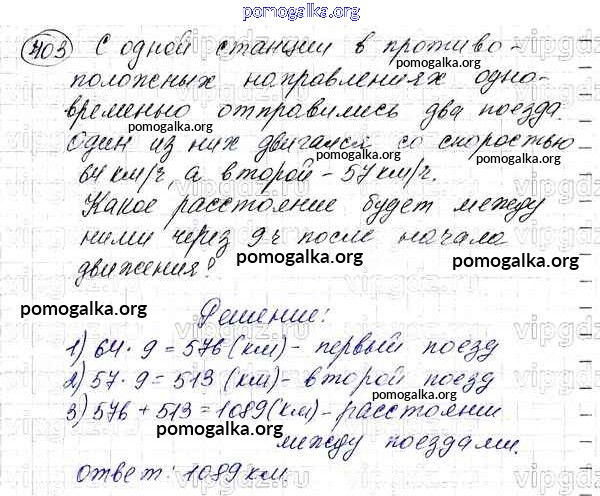 pomogalka.org
403 С одной станции в противо-
pomogalka.org
положных направлениях одно-
временно отправились два поезда.
pomogalka.org
Один из них двигался со скоростью
pomogalka.org
64 км/ч, а второй - 57 км/ч.
Какое расстояние будет между
ними через 9 ч после начала
pomogalka.org
pomogalka.org
движения?
pomogalka.org
Решение:
1) 64 · 9 = 576 (км) - первый поезд
pomogalka.org
2) 57 · 9 = 513 (км) - второй поезд
pomogalka.org
3) 576 + 513 = 1089 (км) - расстоянии
pomogalka.org
между поездами.
ответ: 1089 км.
pomogalka.org